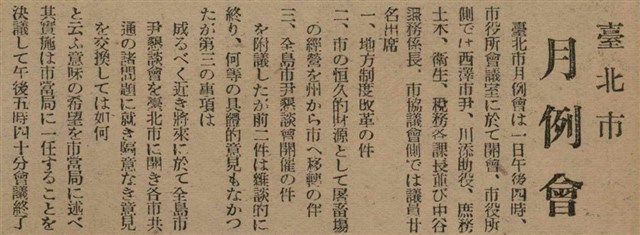 臺北市
月例會
臺北市月例會は一日午後四時、
市役所會議室に於て開會、市役所
側では西澤市尹、川添助役、庶務
土木、衞生、稅務各課長並び中谷
調務係長、市協議會側では議員廿
名出席
一、地方制度改革の件
二、市の恒久的財源として屠畜場
の經營を州から市へ移轉の件
三、全島市尹懇談會開催の件
を附議したが前二件は雜談的に
終り、何等の具體的意見もなかつ
たが第三の事項は
成るべく近き將來に於て全島市
尹懇談會を臺北市に開き各市共
通の諸問題に就き隔意なき意見
を交換しては如何
と云ふ意味の希望を市當局に述べ
其實施は市當局に一任することを
決議して午後五時四十分會議終了